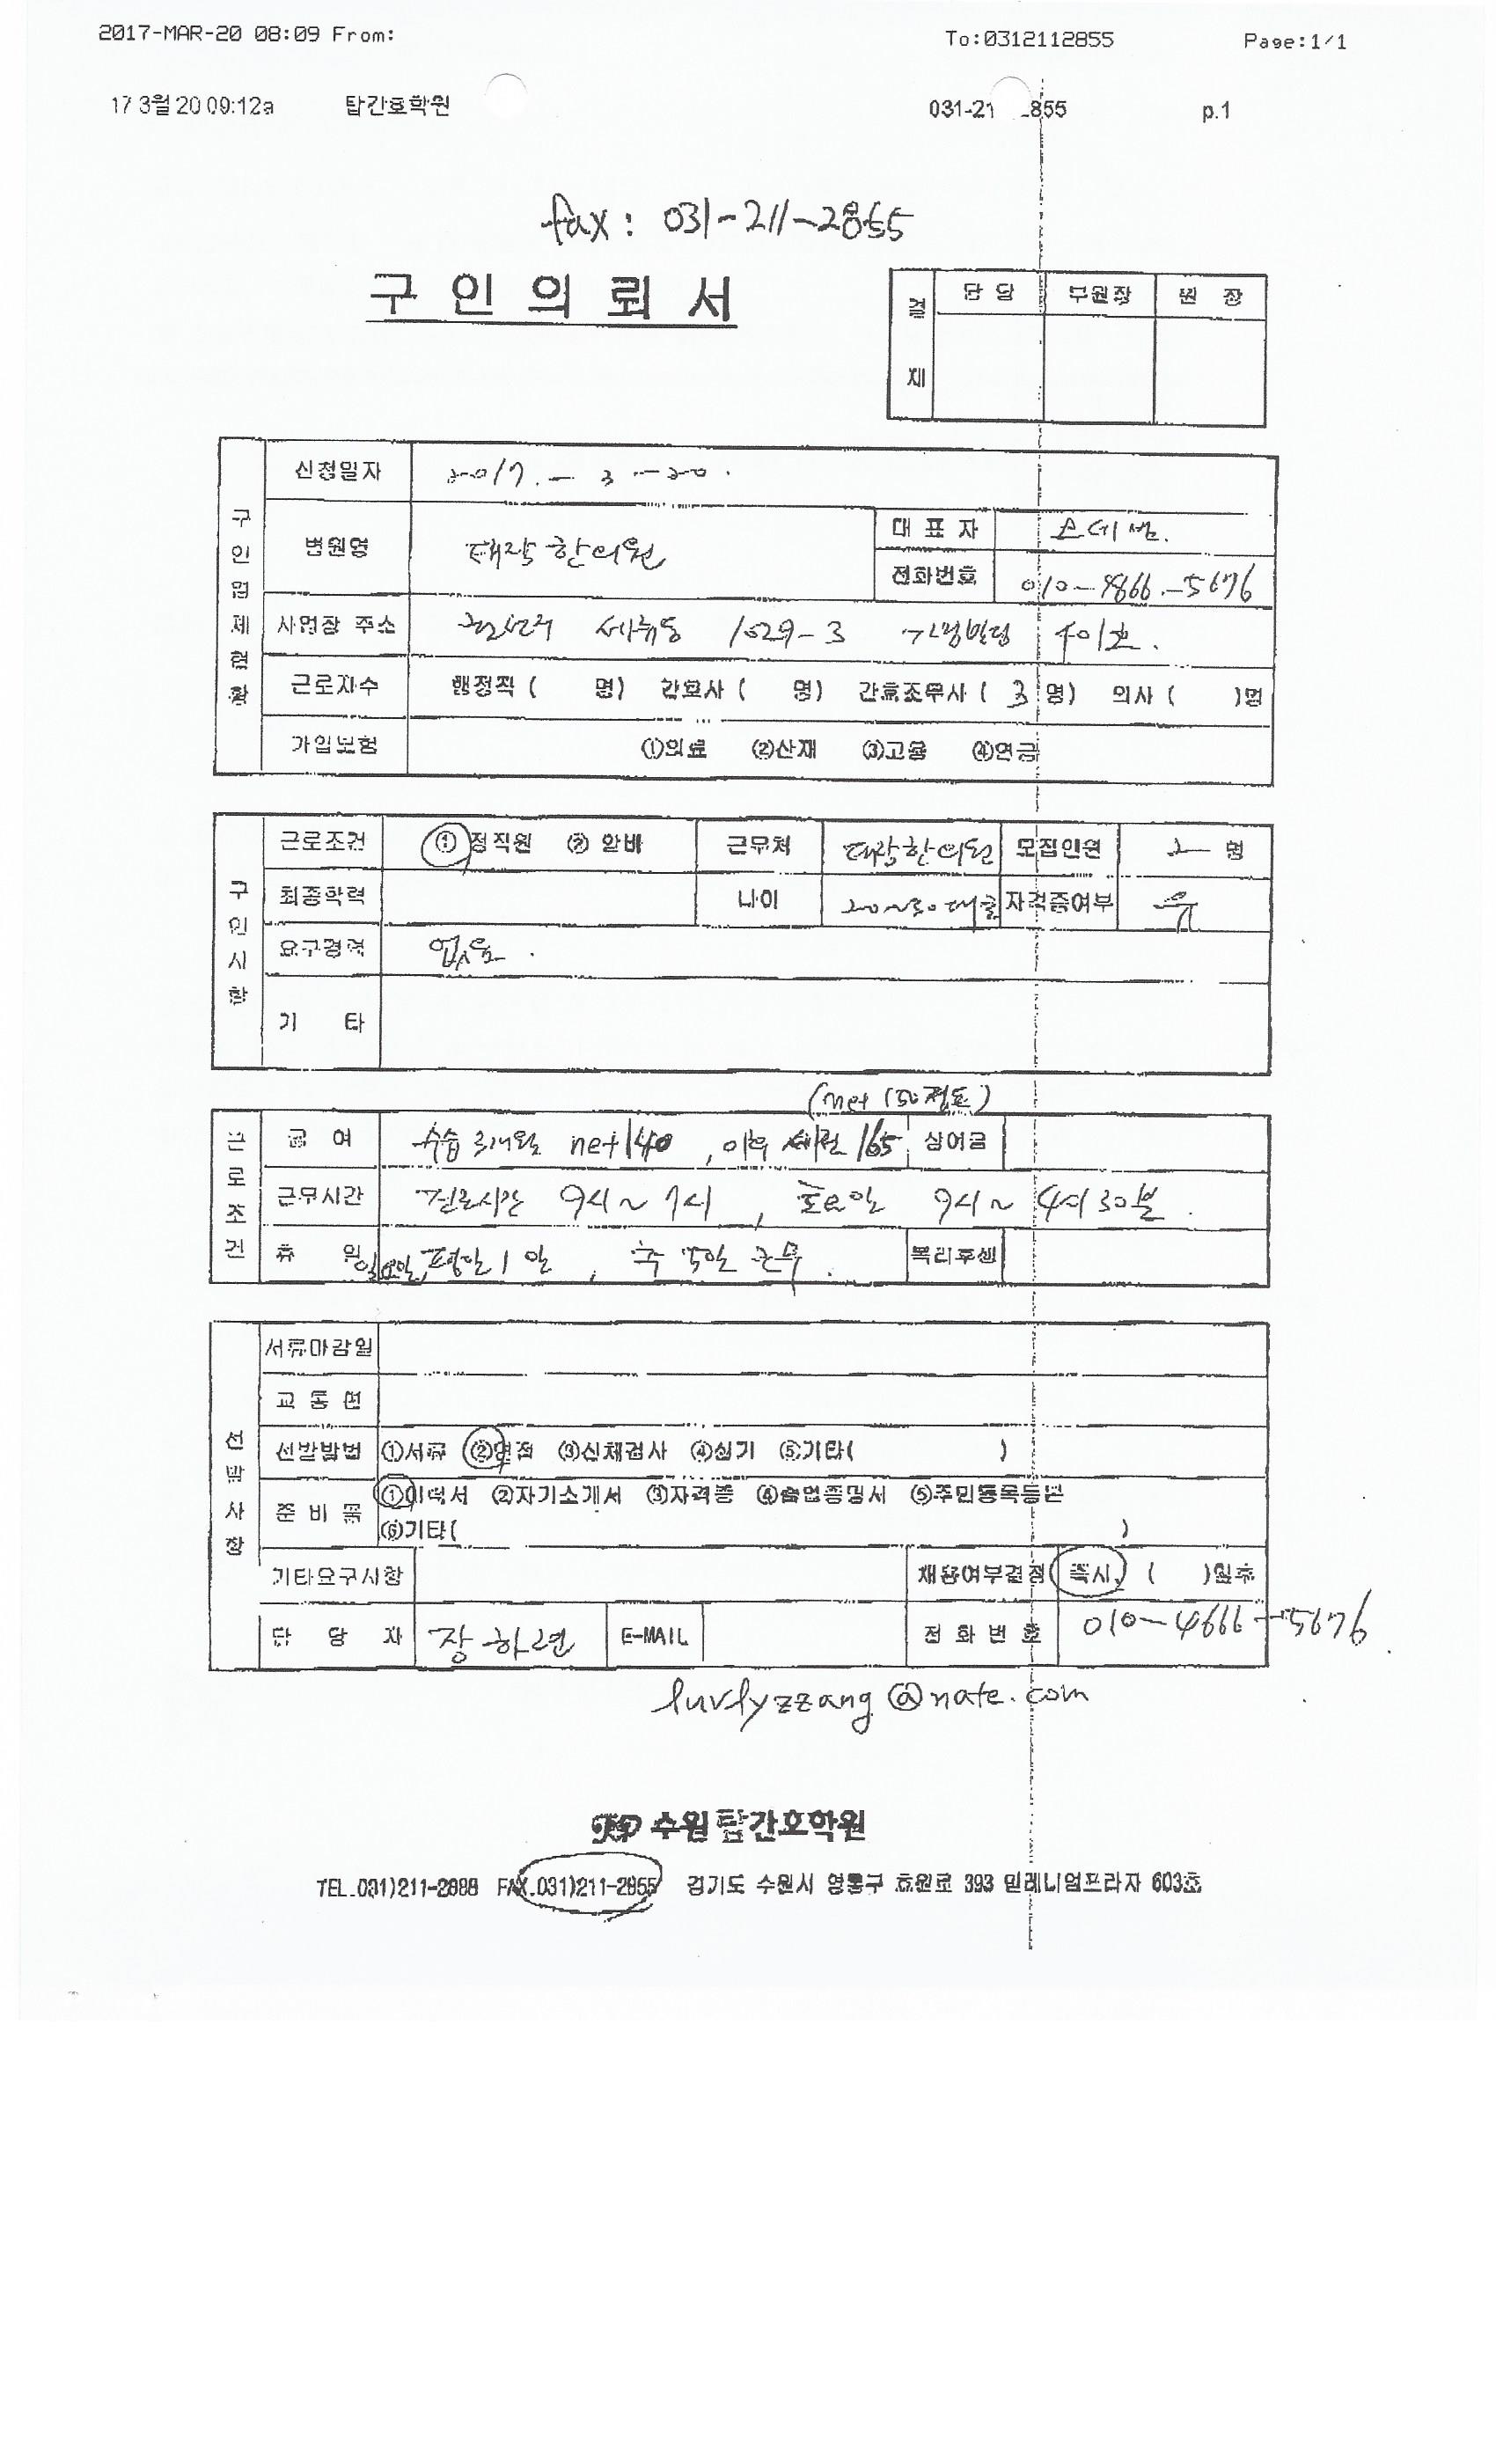 2017-MAR-20 08:09 From: To:0312112855 Page:1/1
17 3월 20 09:12a 탑간호학원 031-21 855 p.1
fax : 031-211-2855
구 인 의 뢰 서
결 재 담 당 부원장 원 장
구 인 업 체 현 황
신청일자 2017. - 3 - 20.
병원명 한의원 대 표 자
전화번호 010- -5676
사업장 주소 1029-3
근로자수 행정직 ( 명) 간호사 ( 명) 간호조무사 ( 3 명) 의사 ( )명
가입보험 ①의료 ②산재 ③고용 ④연금
구 인 사 항
근로조건 ① 정직원 ② 알바 근무처 한의원 모집인원 2 명
최종학력 나이 20~30대 자격증여부 유
요구경력 없음 .
기 타
(net 150정도)
근 로 조 건
급 여 수습 3개월 net 140 , 이후 세전 165 상여금
근무시간 진료시간 9시~7시 , 토요일 9시~ 4시 30분 .
휴 일 일요일, 평일 1 일 , 주 5일 근무 . 복리후생
선 발 사 항
서류마감일
교 통 편
선발방법 ①서류 ②면접 ③신체검사 ④실기 ⑤기타( )
준 비 물 ①이력서 ②자기소개서 ③자격증 ④졸업증명서 ⑤주민등록등본
⑥기타( )
기타요구사항 채용여부결정 즉시, ( )일후
담 당 자 장하련 E-MAIL 전 화 번 호 010-4666-5676
luvlyzzang@nate.com
TOP 수원탑간호학원
TEL.031)211-2888 FAX.031)211-2855 경기도 수원시 영통구 효원로 393 밀레니엄프라자 603호